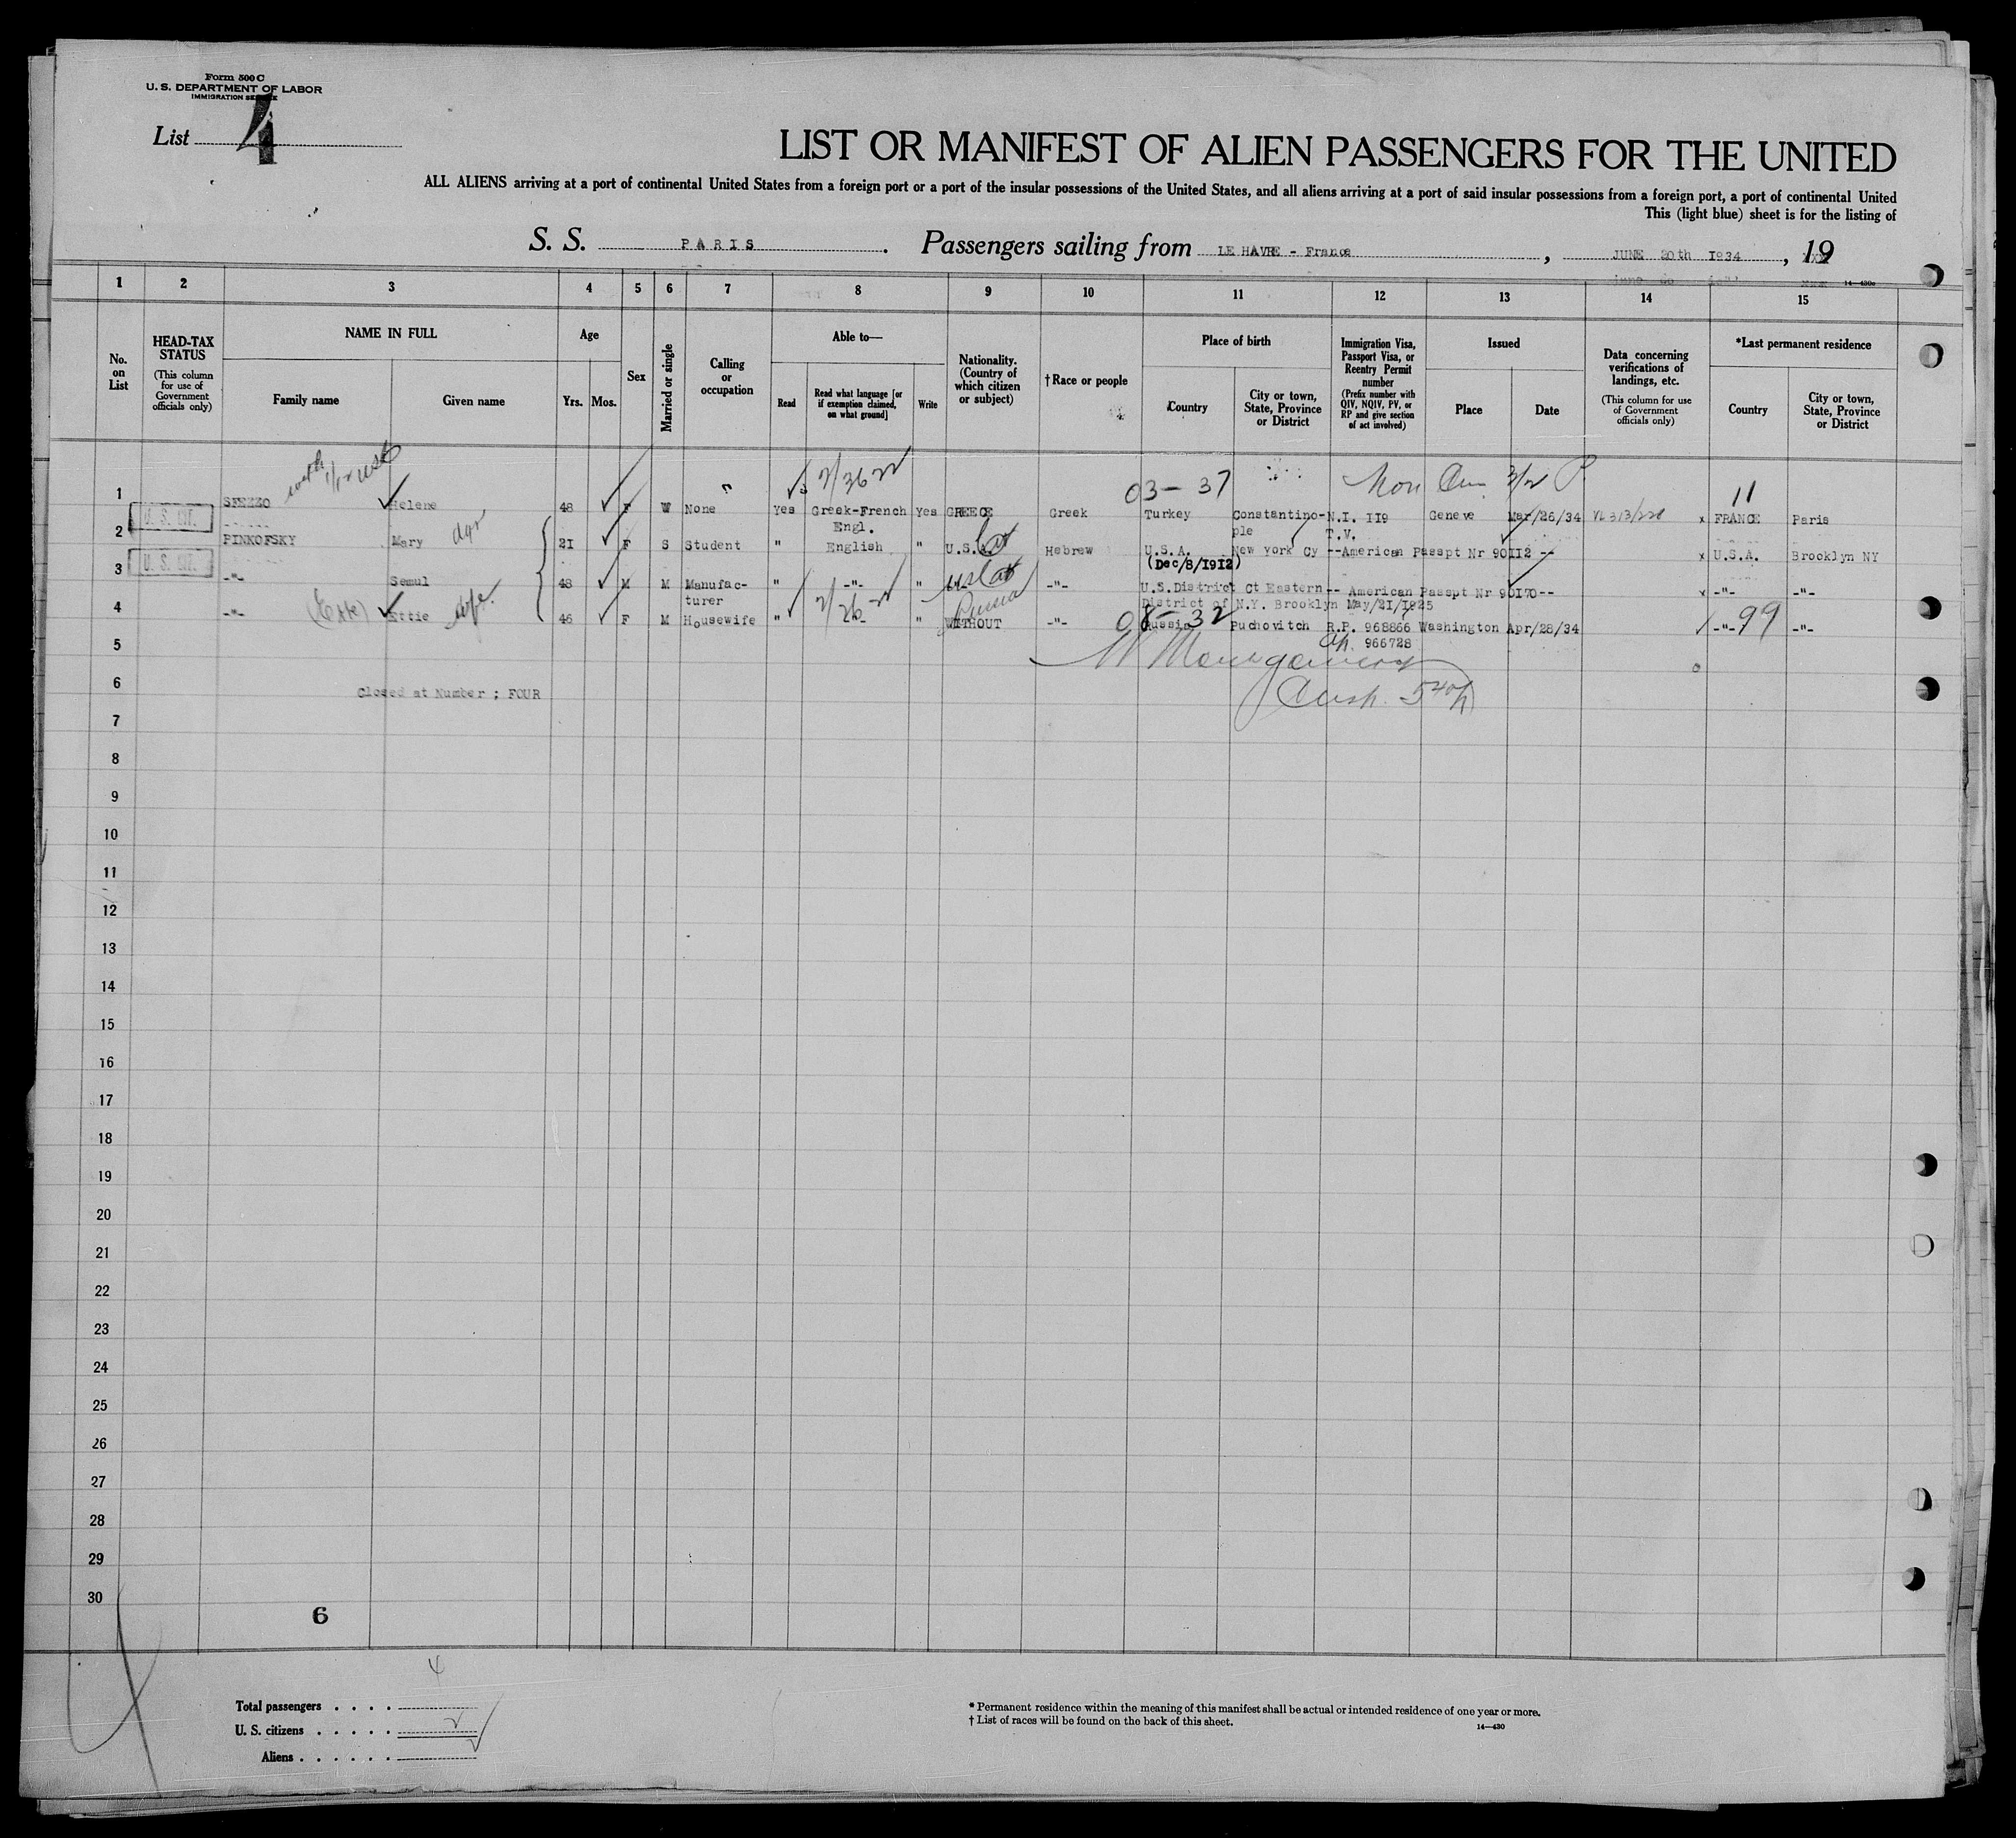 Form 500 C
U. S. DEPARTMENT OF LABOR
IMMIGRATION SERVICE
List 4
LIST OR MANIFEST OF ALIEN PASSENGERS FOR THE UNITED
ALL ALIENS arriving at a port of continental United States from a foreign port or a port of the insular possessions of the United States, and all aliens arriving at a port of said insular possessions from a foreign port, a port of continental United
This (light blue) sheet is for the listing of
S. S. PARIS. Passengers sailing from LE HAVRE - France, JUNE 20th 1934, 19
14—430a
1 2 3 4 5 6 7 8 9 10 11 12 13 14 15
No. on List
HEAD-TAX STATUS
(This column for use of Government officials only)
NAME IN FULL
Family name Given name
Age
Yrs. Mos.
Sex
Married or single
Calling or occupation
Able to—
Read
Read what language [or if exemption claimed, on what ground]
Write
Nationality. (Country of which citizen or subject)
† Race or people
Place of birth
Country
City or town, State, Province or District
Immigration Visa, Passport Visa, or Reentry Permit number
(Prefix number with QIV, NQIV, PV, or RP and give section of act involved)
Issued
Place Date
Data concerning verifications of landings, etc.
(This column for use of Government officials only)
*Last permanent residence
Country
City or town, State, Province or District
03-37 11
1 Helene 48 F W None Yes Greek-French Yes GREECE Greek Turkey Constantino- N.I. 119 Geneve Mar/26/34 x FRANCE Paris
Engl. ple T.V.
U. S. CIT.
2 PINKOFSKY Mary 21 F S Student " English " U.S.A. Hebrew U.S.A. New York Cy --American Passpt Nr 90112 -- x U.S.A. Brooklyn NY
(Dec/8/1912)
U. S. CIT.
3 -"- Semul 48 M M Manufac- " -"- " -"- U.S.District Ct Eastern -- American Passpt Nr 90170-- x -"- -"-
turer District of N.Y. Brooklyn May/21/1925
08-32
4 -"- Ettie 46 F M Housewife " -"- " WITHOUT -"- Russia Puchovitch R.P. 968866 Washington Apr/28/34 -"- 99 -"-
966728
5
6 Closed at Number ; FOUR
7
8
9
10
11
12
13
14
15
16
17
18
19
20
21
22
23
24
25
26
27
28
29
30
6
Total passengers . . . . 4
U. S. citizens . . . . . 2
Aliens . . . . . . 2
* Permanent residence within the meaning of this manifest shall be actual or intended residence of one year or more.
† List of races will be found on the back of this sheet.
14—430